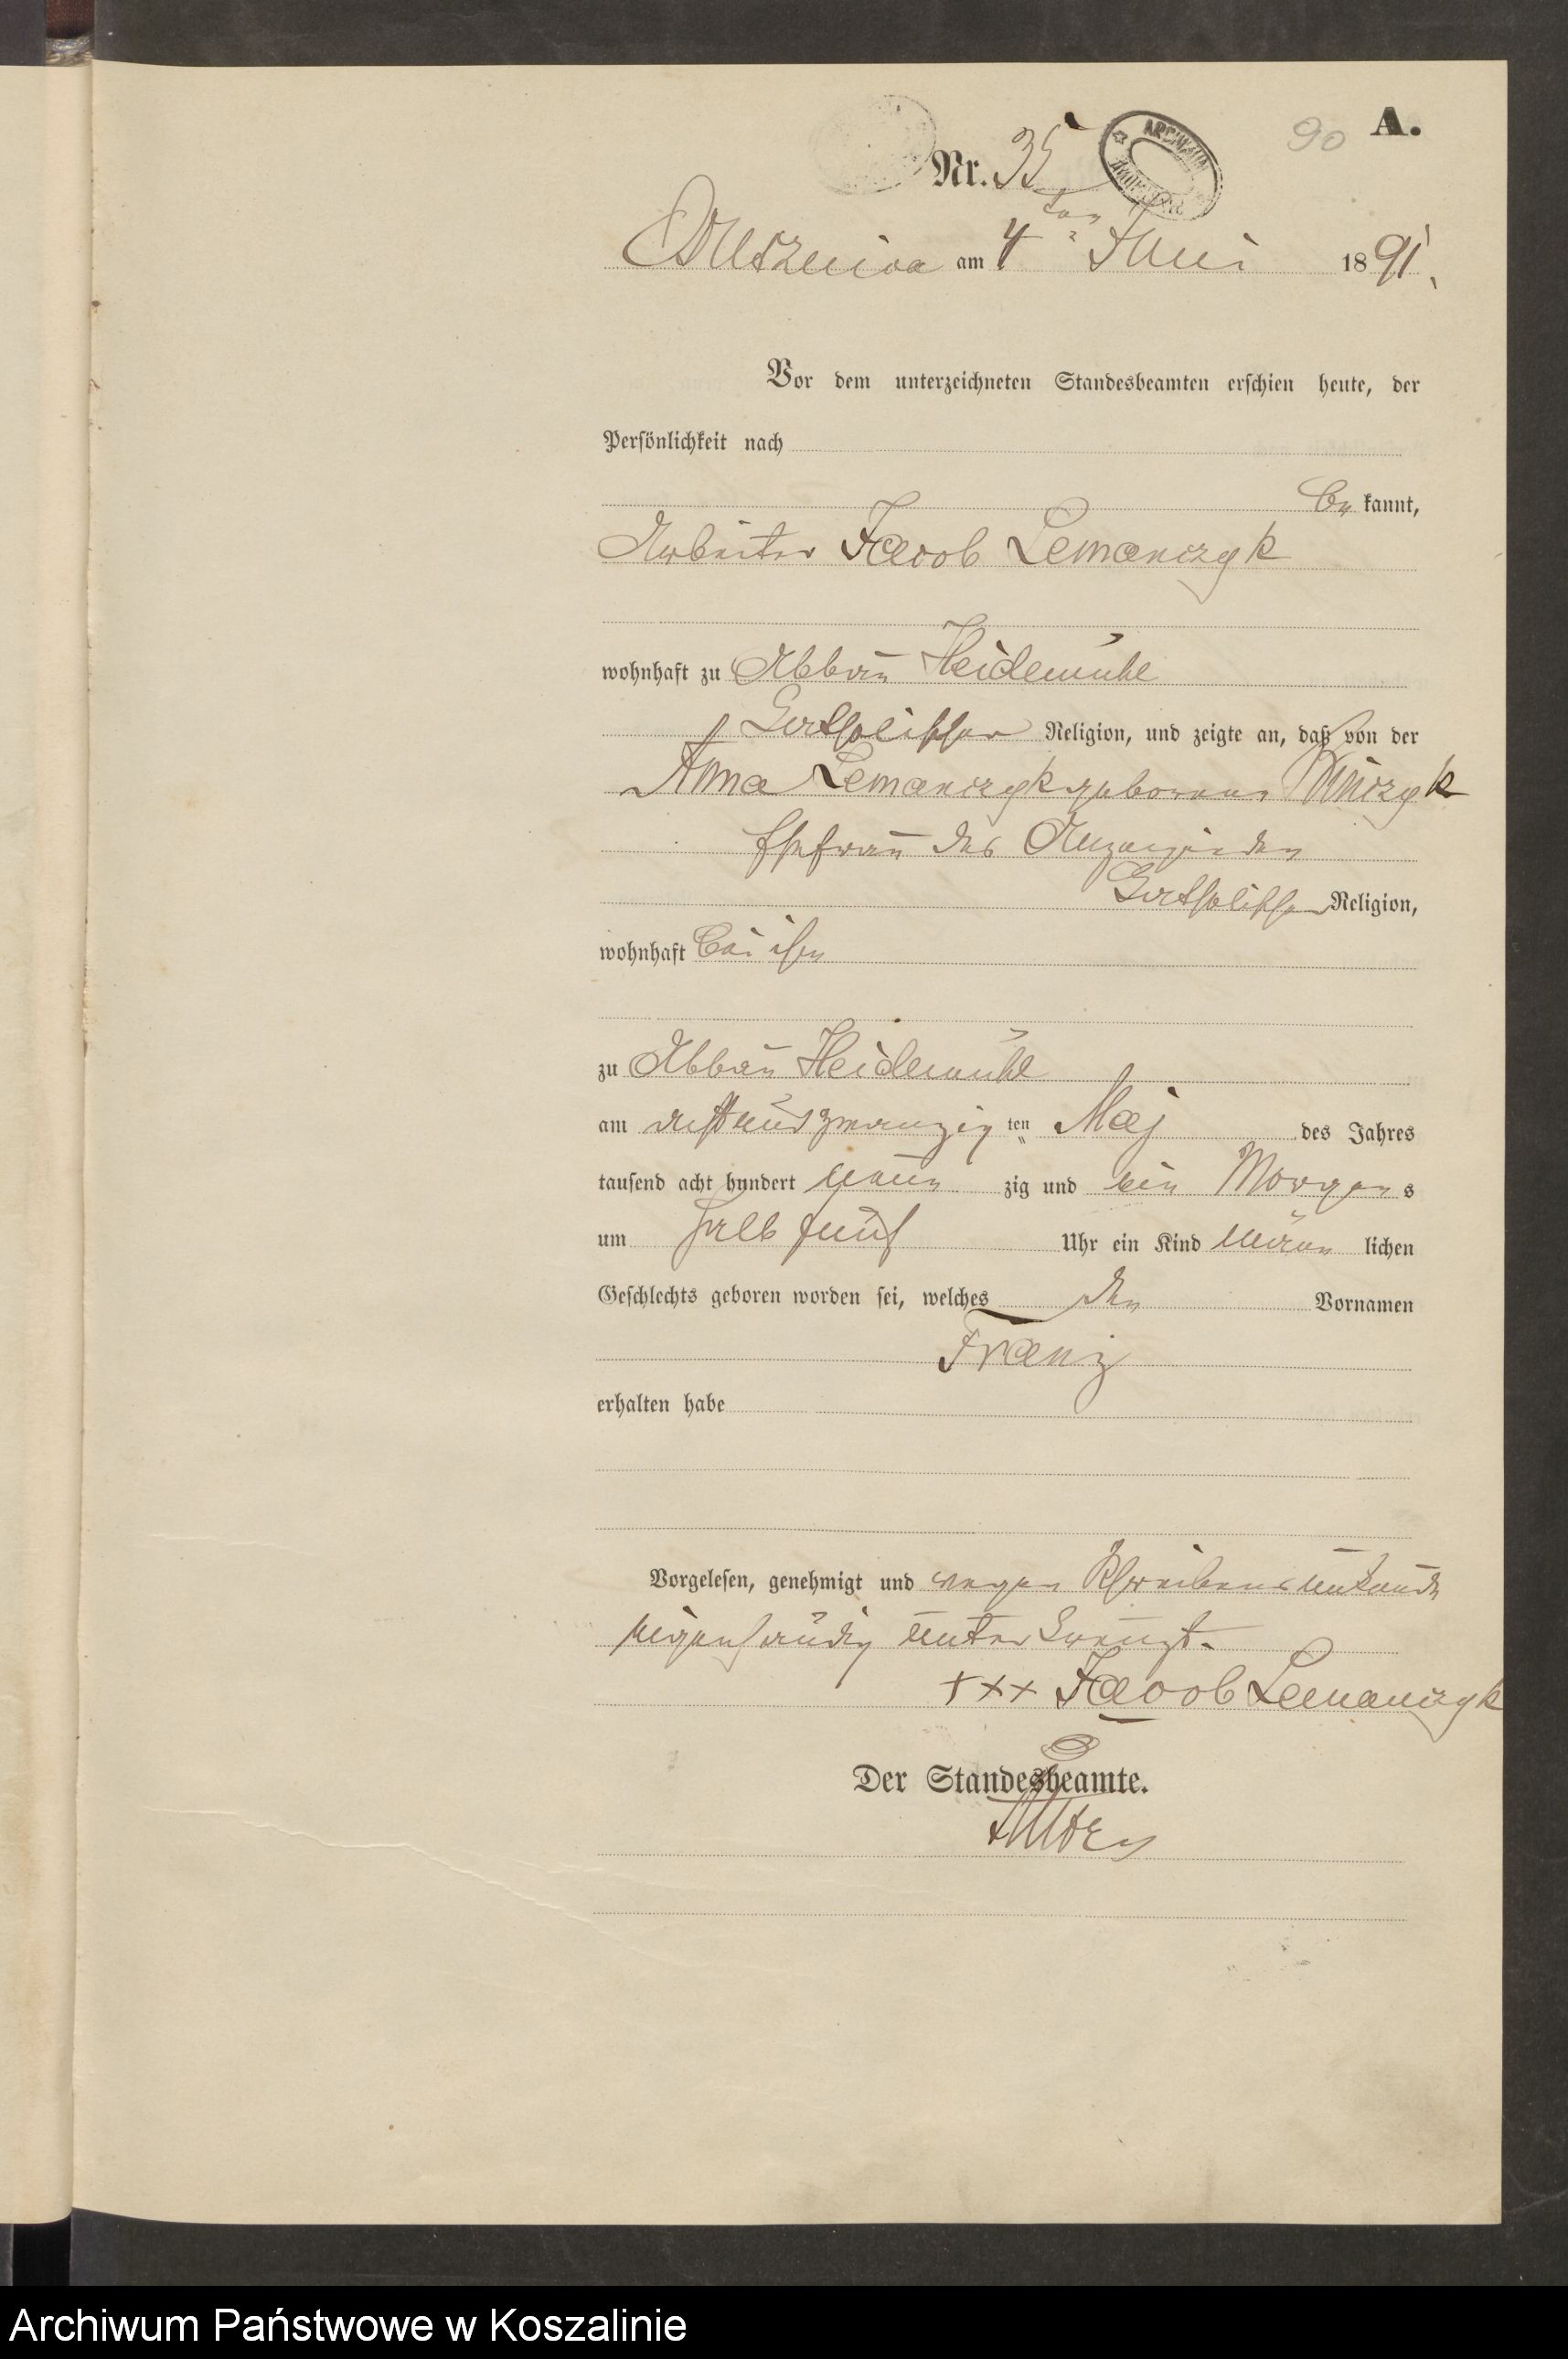 90 A.
Nr. 35
Brzezno am 4ten Juni 1891.
Vor dem unterzeichneten Standesbeamten erschien heute, der
Persönlichkeit nach
be kannt,
Arbeiter Jacob Lemanczyk
wohnhaft zu Abbau Heidemühl
katholischer Religion, und zeigte an, daß von der
Anna Lemanczyk geborenen
Ehefrau des Anzeigenden
katholischer Religion,
wohnhaft bei ihm
zu Abbau Heidemühl
am achtundzwanzig ten Maj des Jahres
tausend acht hundert neun zig und ein Morgens
um halb fünf Uhr ein Kind männ lichen
Geschlechts geboren worden sei, welches den Vornamen
Franz
erhalten habe
Vorgelesen, genehmigt und wegen Schreibensunkunde
eigenhändig unterkreuzt.
+++ Jacob Lemanczyk
Der Standesbeamte.
Archiwum Państwowe w Koszalinie